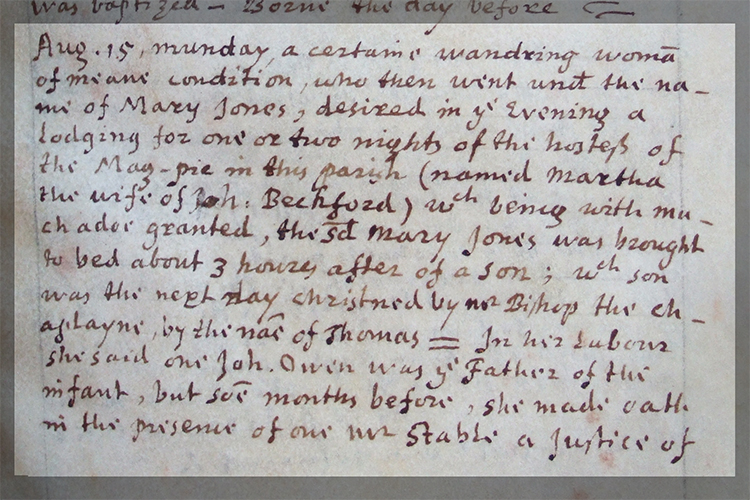 was baptized – Borne the day before =
Aug. 15, munday, a certaine wandring womā
of meane condition, who then went und̄ the na–
me of Mary Jones, desired in yᵉ Evening a
Lodging for one or two nights of the hostess of
the Mag-pie in this parish (named Martha
the wife of Joh: Beckford) wᶜʰ being with mu–
ch adoe granted, the sd̄ Mary Jones was brought
to bed about 3 hours after of a son; wᶜʰ son
was the next day christned by mr Bishop the ch–
aplayne, by the nāe of Thomas = In her Labour
she said one Joh. Owen was yᵉ Father of the
infant, but sōe months before, she made oath
in the presence of one mr Stable a Justice of